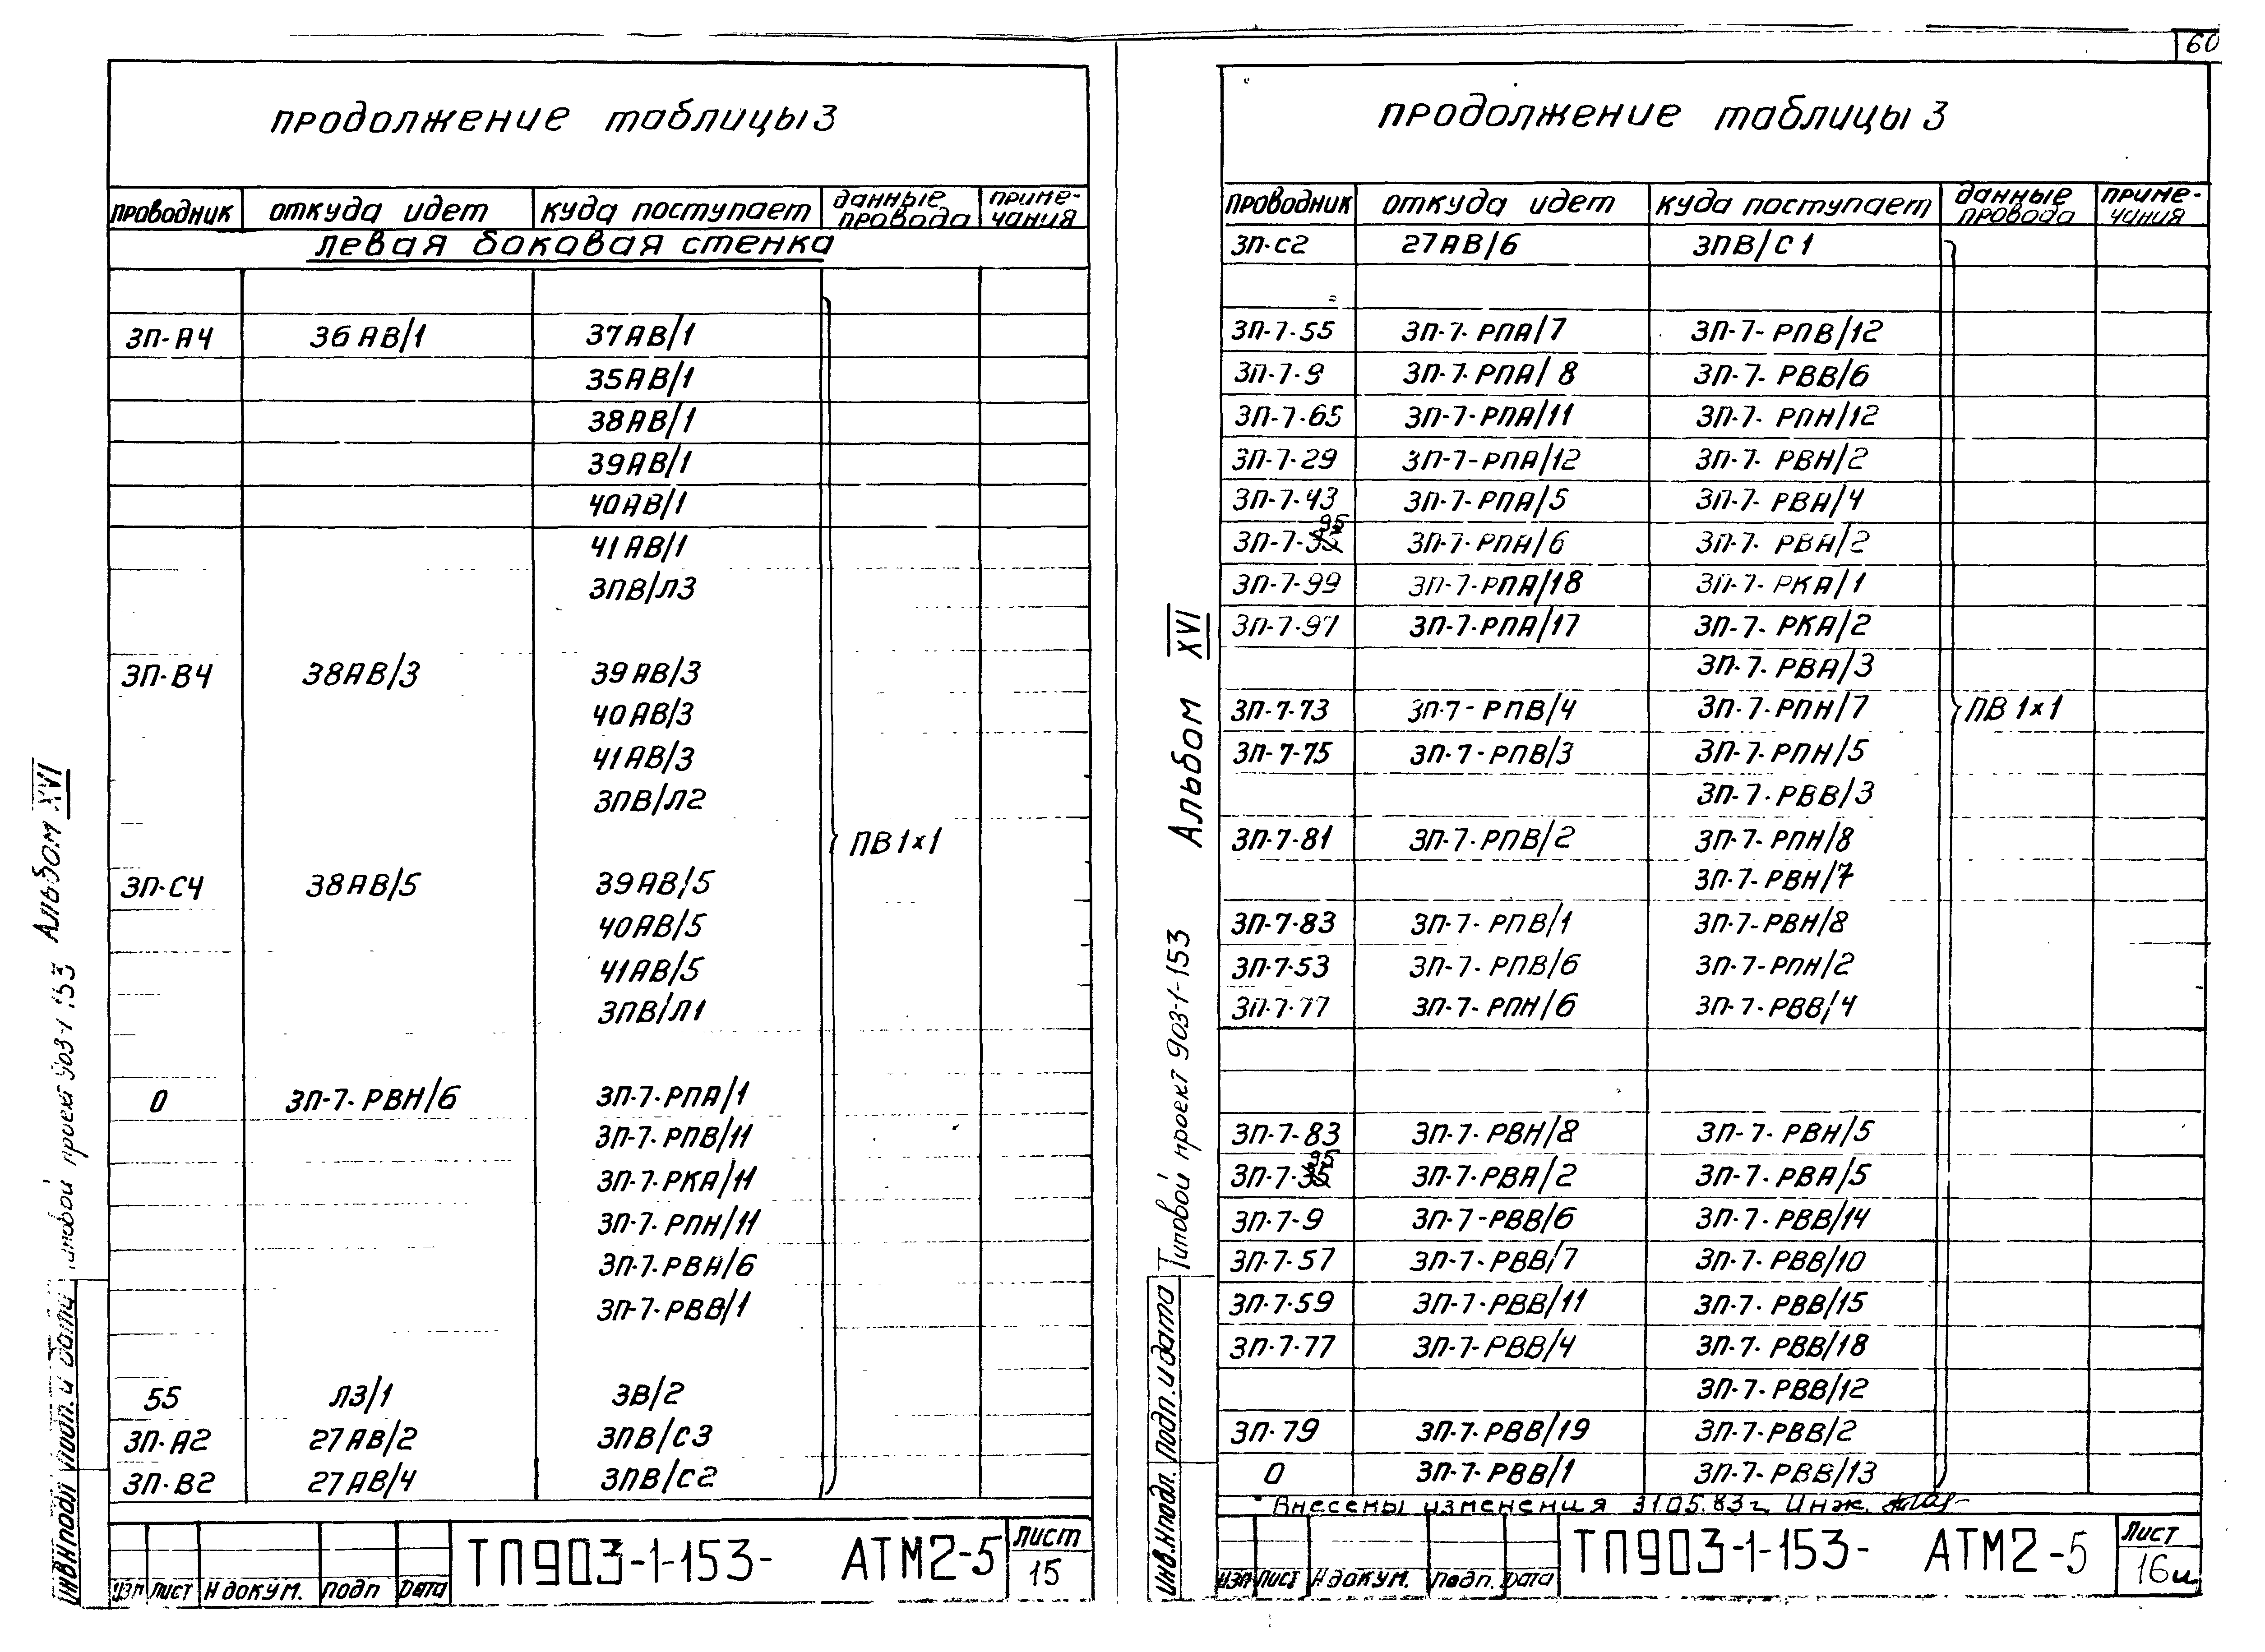 60
продолжение таблицы 3
проводник откуда идет куда поступает данные провода приме-чания
левая боковая стенка
3П-А4 36АВ/1 37АВ/1
35АВ/1
38АВ/1
39АВ/1
40АВ/1
41АВ/1
3ПВ/Л3
3П-В4 38АВ/3 39АВ/3
40АВ/3
41АВ/3
3ПВ/Л2
ПВ1×1
3П-С4 38АВ/5 39АВ/5
40АВ/5
41АВ/5
3ПВ/Л1
0 3П-7-РВН/6 3П-7-РПА/1
3П-7-РПВ/11
3П-7-РКА/11
3П-7-РПН/11
3П-7-РВА/6
3П-7-РВВ/1
55 Л3/1 3В/2
3П-А2 27АВ/2 3ПВ/С3
3П-В2 27АВ/4 3ПВ/С2
изм лист N докум. подп дата
ТП903-1-153- АТМ2-5
лист
15
Типовой проект 903-1-153 Альбом XVI
инв.Nподл подп. и дата
продолжение таблицы 3
проводник откуда идет куда поступает данные провода приме-чания
3П-С2 27АВ/6 3ПВ/С1
3П-7-55 3П-7-РПА/7 3П-7-РПВ/12
3П-7-9 3П-7-РПА/8 3П-7-РВВ/6
3П-7-65 3П-7-РПА/11 3П-7-РПН/12
3П-7-29 3П-7-РПА/12 3П-7-РВН/2
3П-7-43 3П-7-РПА/5 3П-7-РВА/4
3П-7-95 3П-7-РПА/6 3П-7-РВА/2
3П-7-99 3П-7-РПА/18 3П-7-РКА/1
3П-7-97 3П-7-РПА/17 3П-7-РКА/2
3П-7-РВА/3
3П-7-73 3П-7-РПВ/4 3П-7-РПН/7 ПВ 1×1
3П-7-75 3П-7-РПВ/3 3П-7-РПН/5
3П-7-РВВ/3
3П-7-81 3П-7-РПВ/2 3П-7-РПН/8
3П-7-РВН/7
3П-7-83 3П-7-РПВ/1 3П-7-РВН/8
3П-7-53 3П-7-РПВ/6 3П-7-РПН/2
3П-7-77 3П-7-РПН/6 3П-7-РВВ/4
3П-7-83 3П-7-РВН/8 3П-7-РВН/5
3П-7-95 3П-7-РВА/2 3П-7-РВА/5
3П-7-9 3П-7-РВВ/6 3П-7-РВВ/14
3П-7-57 3П-7-РВВ/7 3П-7-РВВ/10
3П-7-59 3П-7-РВВ/11 3П-7-РВВ/15
3П-7-77 3П-7-РВВ/4 3П-7-РВВ/18
3П-7-РВВ/12
3П-79 3П-7-РВВ/19 3П-7-РВВ/2
0 3П-7-РВВ/1 3П-7-РВВ/13
Внесены изменения 31.05.83г. Инж.
изм лист N докум. подп. дата
ТП903-1-153- АТМ2-5
лист
16и
Типовой проект 903-1-153 Альбом XVI
инв.Nподл. подп. и дата